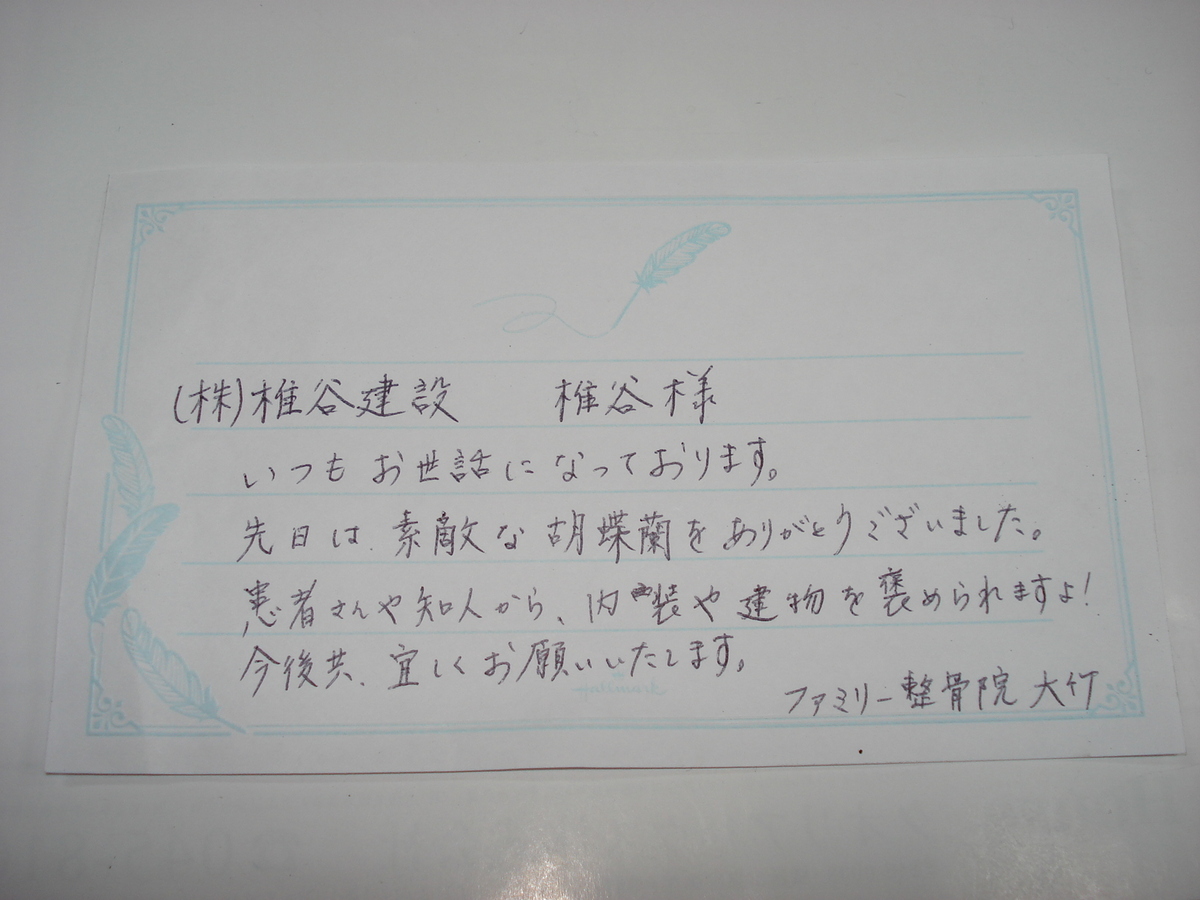 (株)椎谷建設　椎谷様
いつもお世話になっております。
先日は、素敵な胡蝶蘭をありがとうございました。
患者さんや知人から、内装や建物を褒められますよ!
今後共、宜しくお願いいたします。
ファミリー整骨院 大竹